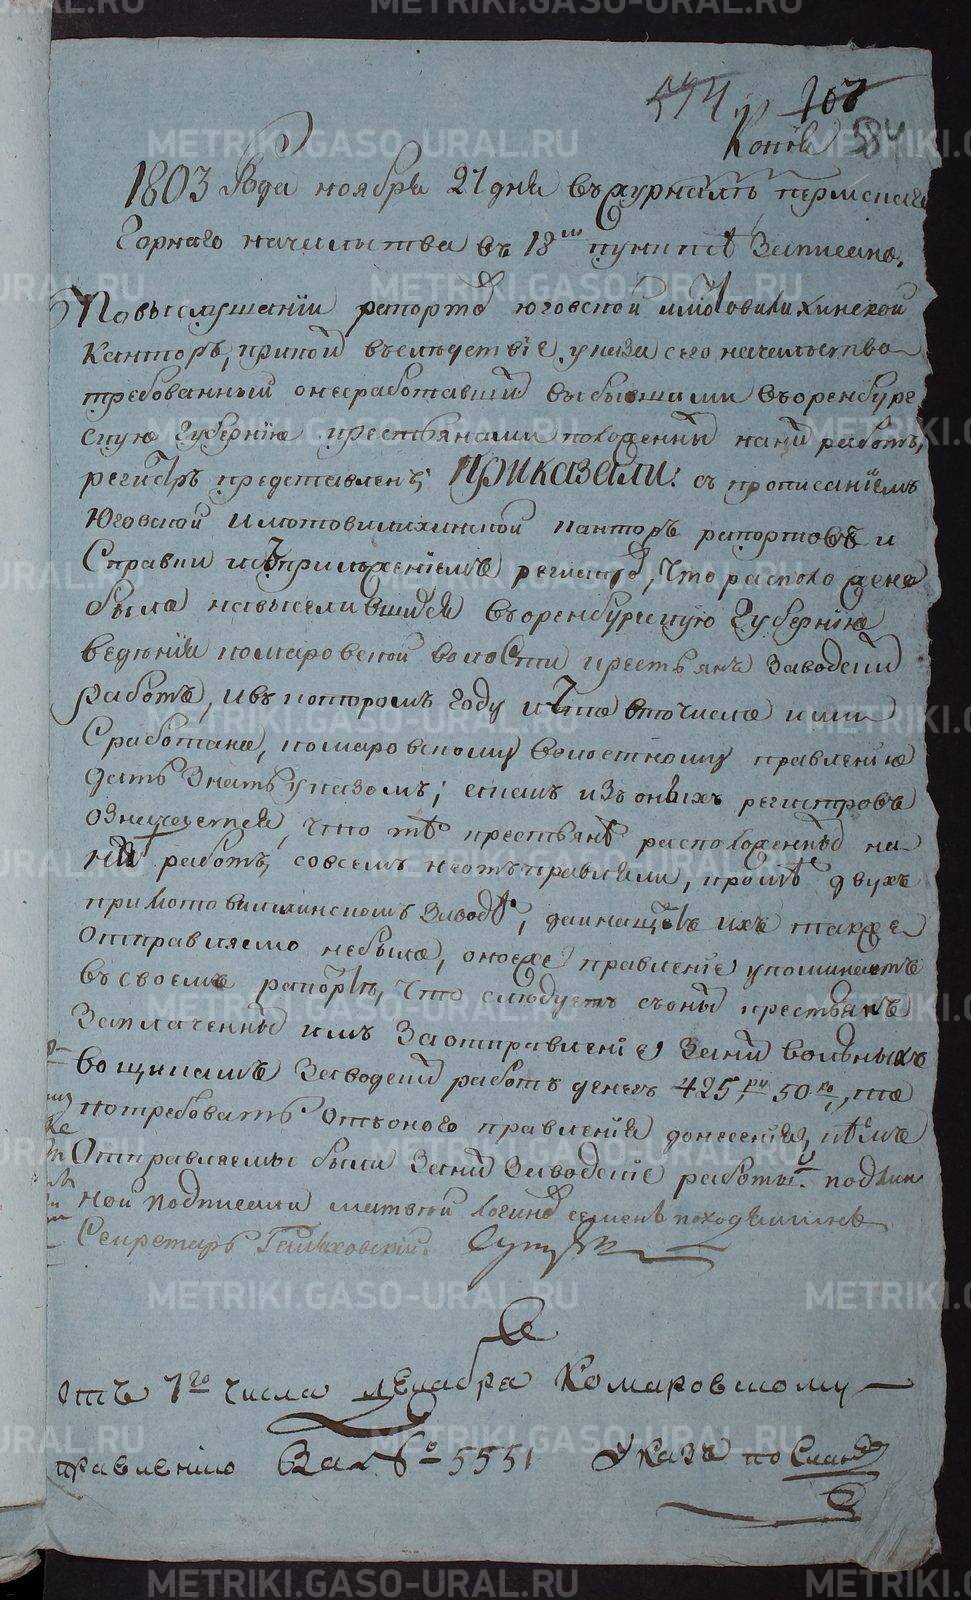 574 107
Копия 84
1803 Года ноября 27 дня въ журналѣ пермскаго
Горнаго начальства въ 18м пунктѣ Записано.
По выслушании рапортов юговской и мотовилихинской
Кантор, при кои въ следствие указа сего начальства
требованныи о несработавших выбывшими в оренбург
скую Губернию крестьянами положенных на них работ,
регистръ представлены; Приказали: съ прописанием
Юговской и мотовилихинской кантор рапортов и
Справки и съ приложением регистра, что расположено
было на выселившихся в оренбургскую Губернию
ведения комаровской волости крестьянъ Заводских
работъ, и въ котором году и что в то число ими
Сработано, комаровскому волостному правлению
дать Знать указом; а какъ изъ оных регистровъ
означается, что те крестьяне расположенных на
них работъ, совсемъ не отправляли, кроме двухъ
при мотовилихинском Заводе, да и на щетъ ихъ также
отправляемо не было, оное же правление упоминаетъ
въ своемъ рапорте, что следует съ оных крестьянъ
Заплаченных имъ За отправление За них вольным
вощикамъ Заводских работъ денегъ 425 ру 50 ко, то
потребовать от оного правления донесения, кемъ
Отправляемы были За них Заводские работы. подлин
ной подписали матвей логинов семенъ походяшинъ
Секретарь Гамиховский.
Отъ 7го числа декабря Комаровскому
правлению За № 5551 Указъ посланъ
METRIKI.GASO-URAL.RU